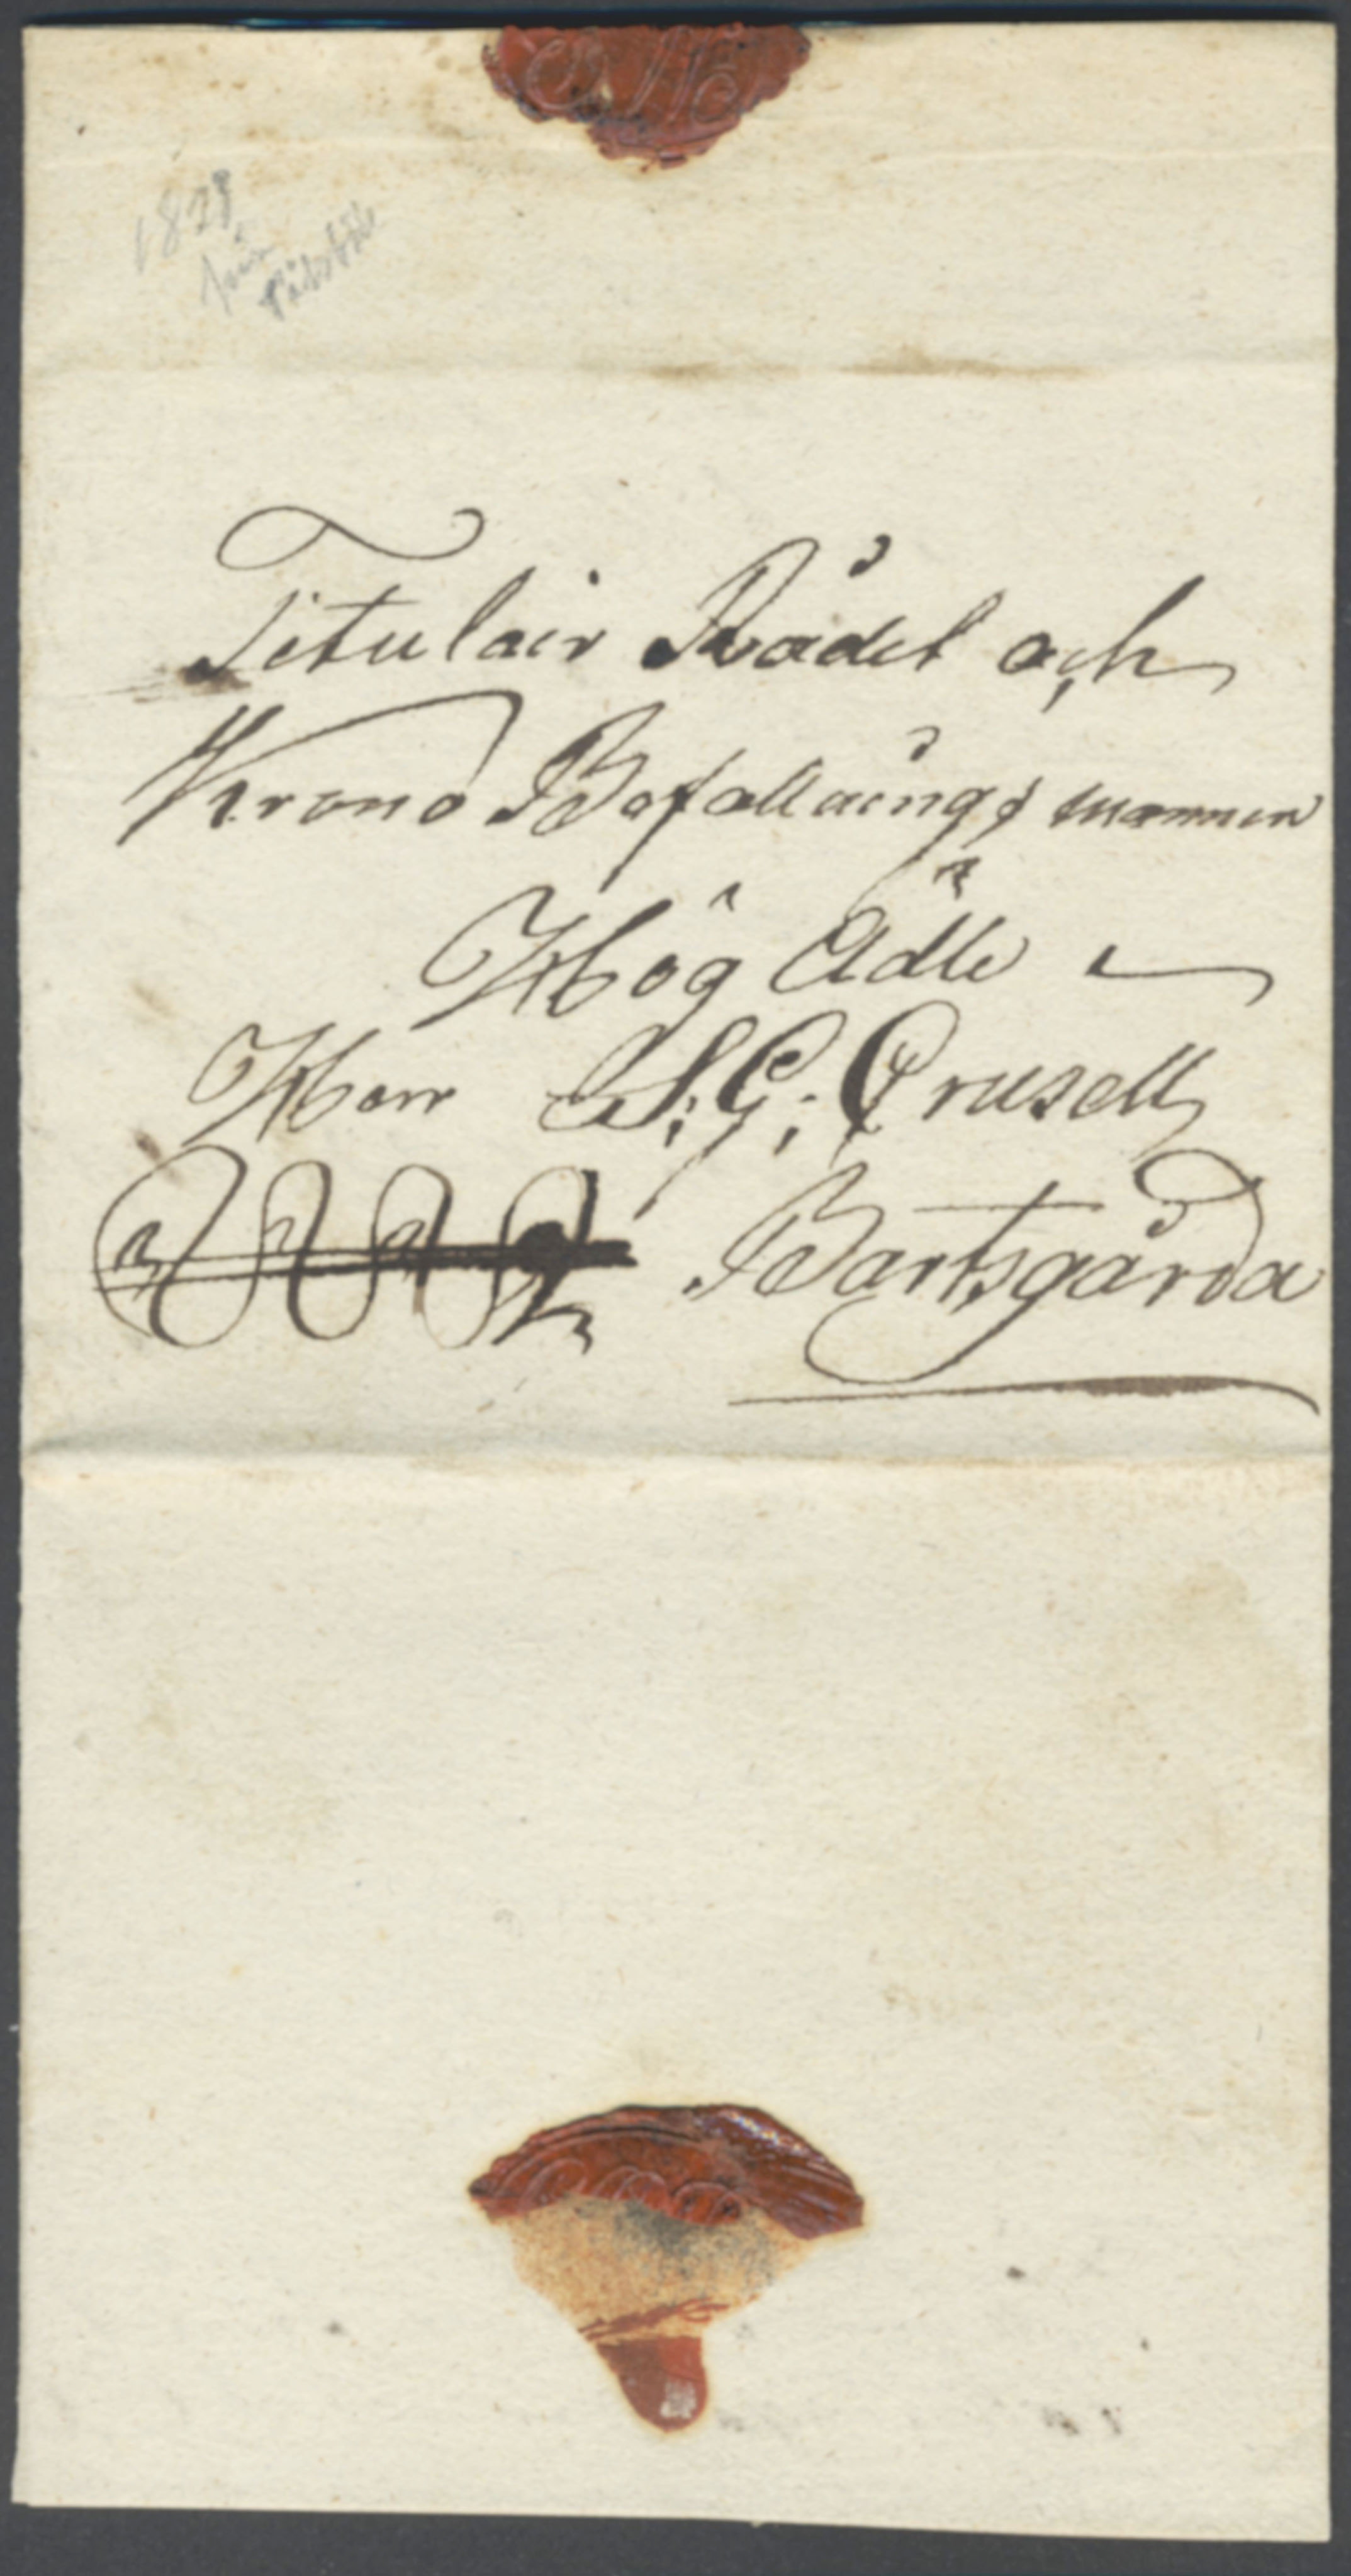 1828
från
Titulair Rådet och
Krono Befallnings mannen
Hög Ädle
Herr S. G. Crusell
Bartsgårda